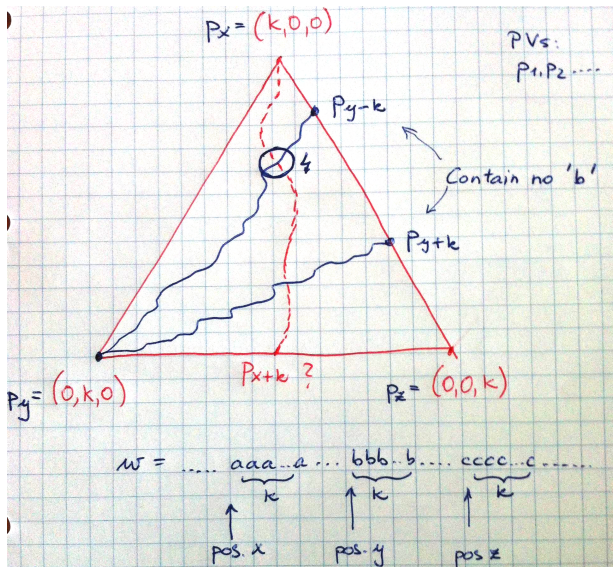 Px = (k,0,0)
PVs:
P1,P2 ....
Py-k
↯
Contain no 'b'
Py+k
Px+k ?
Py = (0,k,0)
Pz = (0,0,k)
w = ..... aaa...a ... bbb...b ..... cccc...c ......
k k k
pos. x pos. y pos z